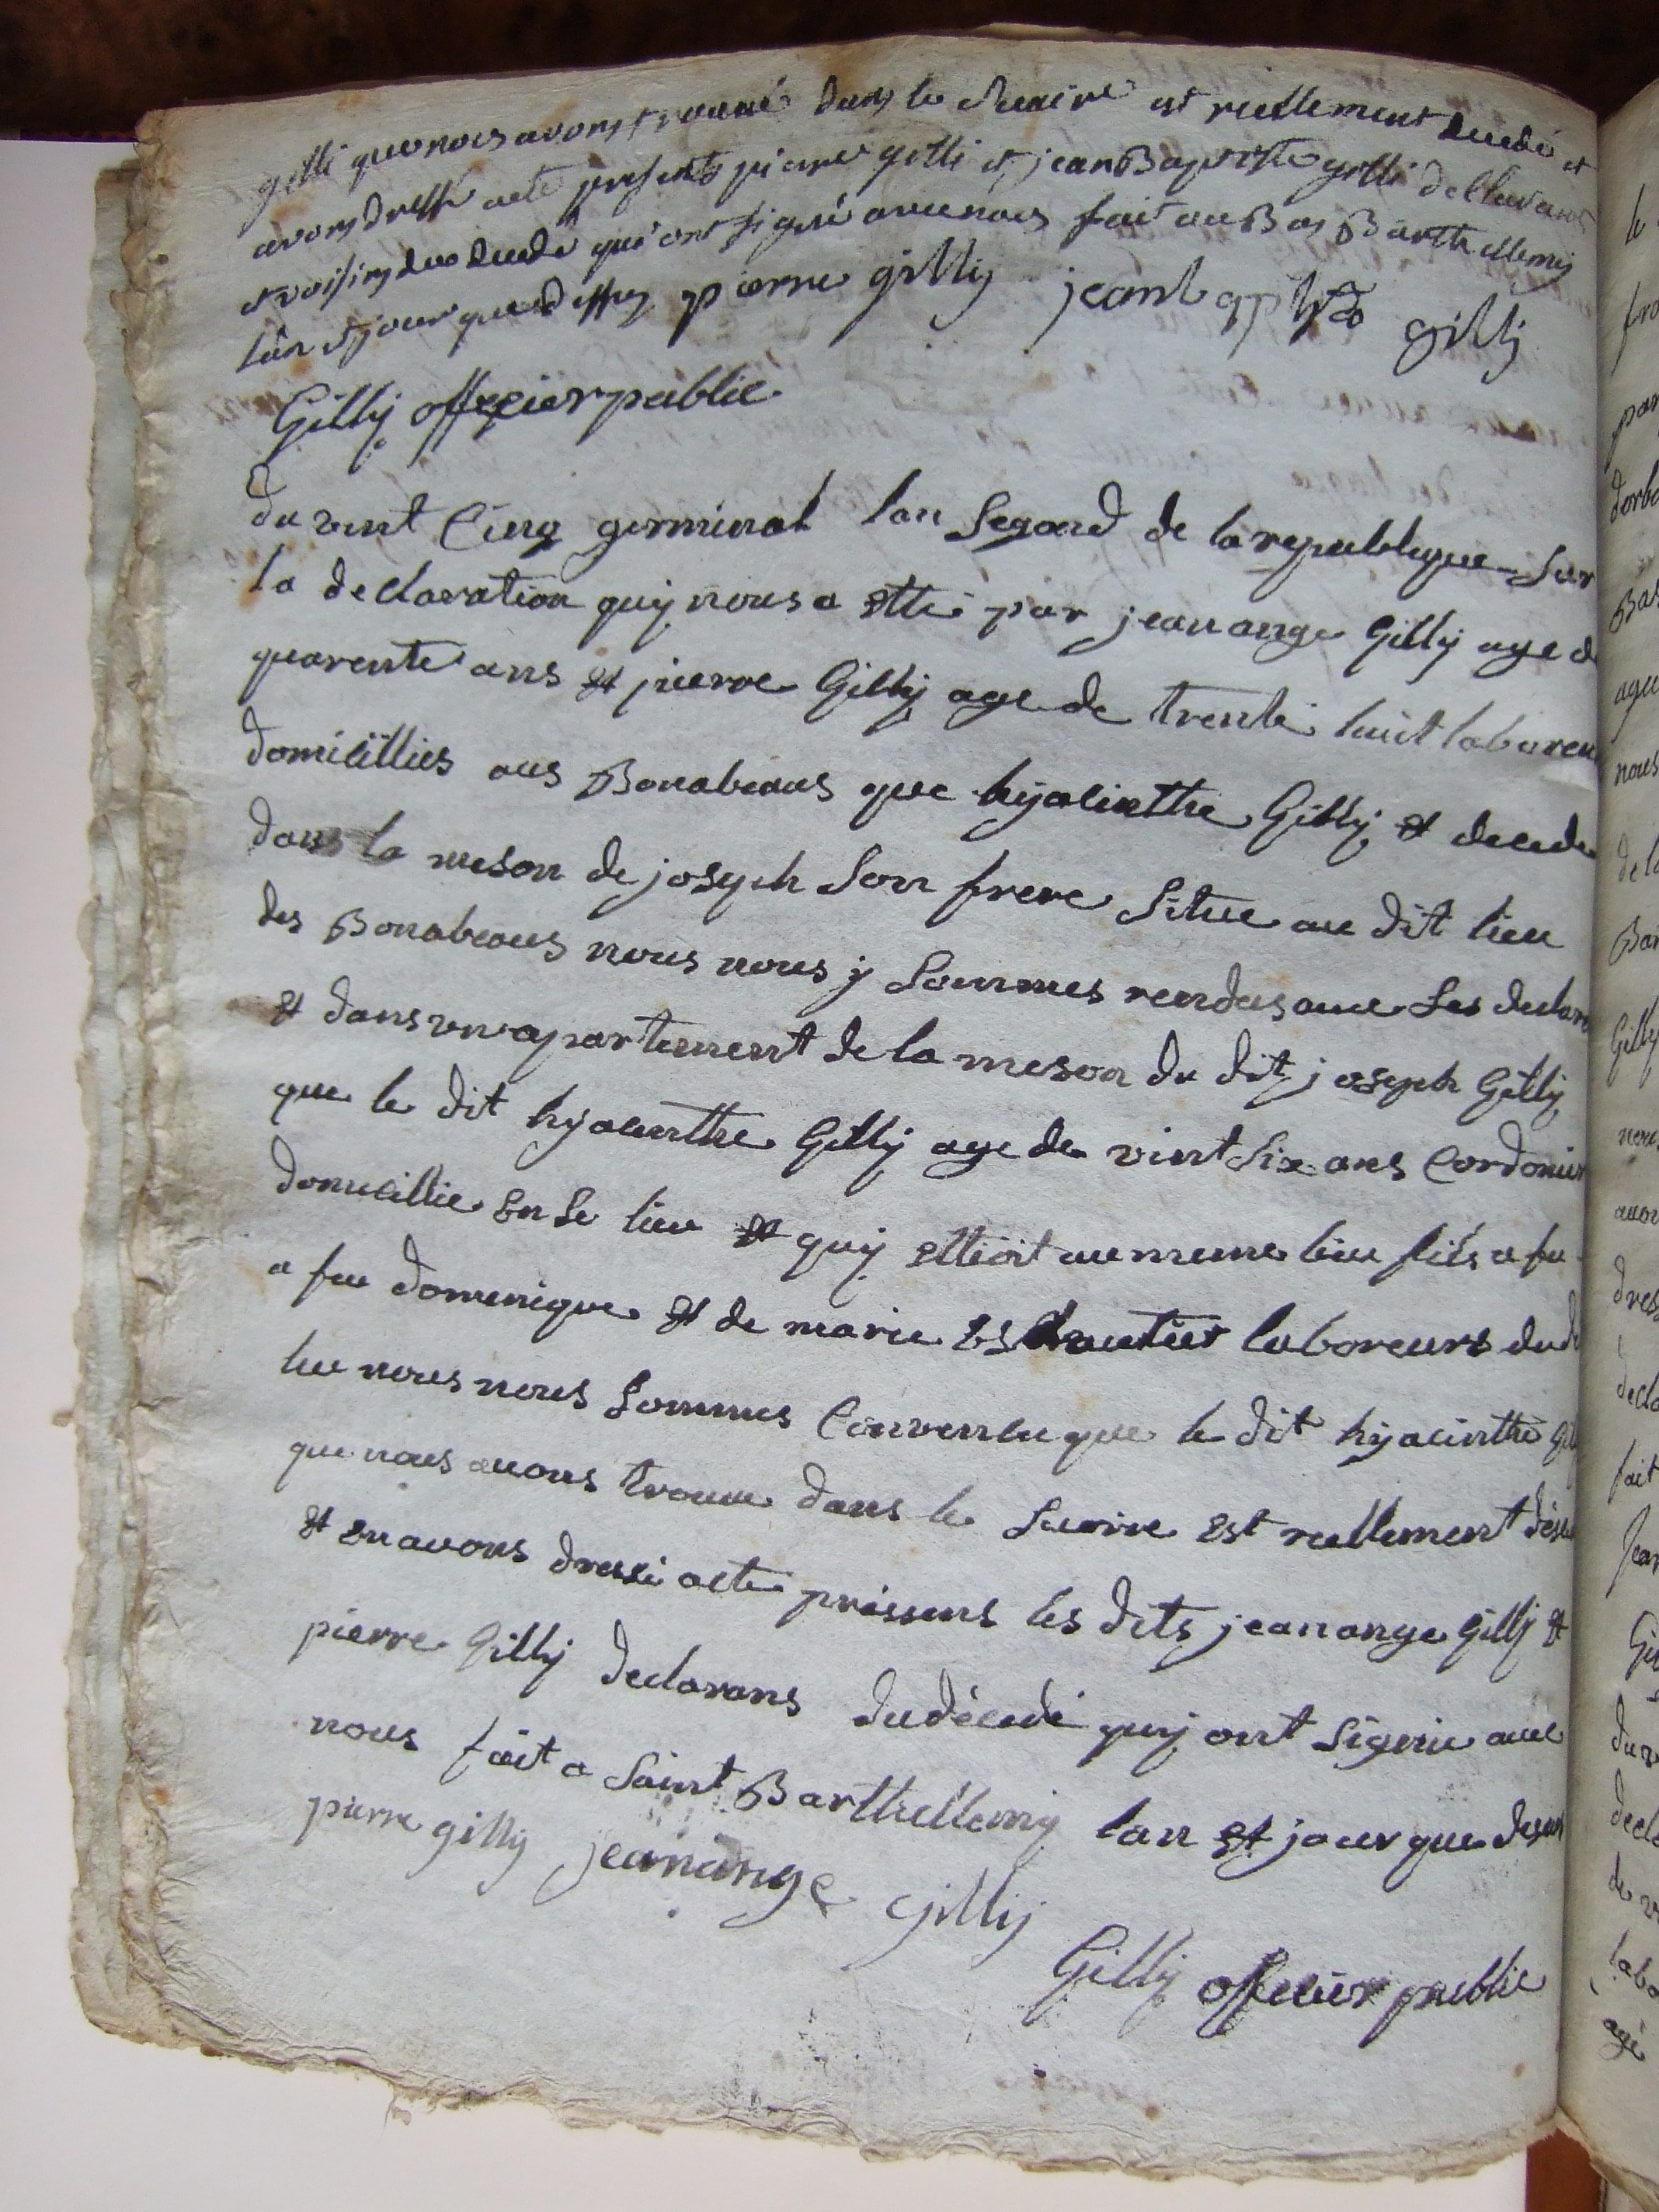 gilli que nous avons trouvé dans le suaire est reellement decedé et
avons dressé acte presents pierre gilli et jean Baptiste gilli declarans
et voisins du decedé qui ont signé avec nous fait au Bas Barthellemy
lan et jour que dessus pierre gilly jean baptiste gilly
Gilly officier public
du vint Cinq germinal lan Segond de la republique Sur
la declaration quy nous a etté par jean ange Gilly age de
quarente ans et pierre Gilly age de trente huit laboreu
domicillies aus Bonabeaus que hyacintthe Gilly et decede
dans la meson de joseph Son frere Situe au dit lieu
des Bonabeaus nous nous y Sommes rendus avec Les declara
et dans un apartement de la meson du dit joseph Gilly
que le dit hyacintthe Gilly age de vint Six ans Cordonier
domicillie En Se lieu et quy ettoit au meme lieu fils a fu
a feu domenique et de marie laboreurs du d
lieu nous nous Sommes Convenlu que le dit hyacintthe Gil
que nous avons trouve dans le Suoire Est reellement dese
et En avons dressé acte préssens les dits jean ange Gilly et
pierre Gilly declarans du décedé quy ont Signie avec
nous fait a Saint Barthellemy lan et jour que desus
pierre gilly jean ange gilly
Gilly officier public